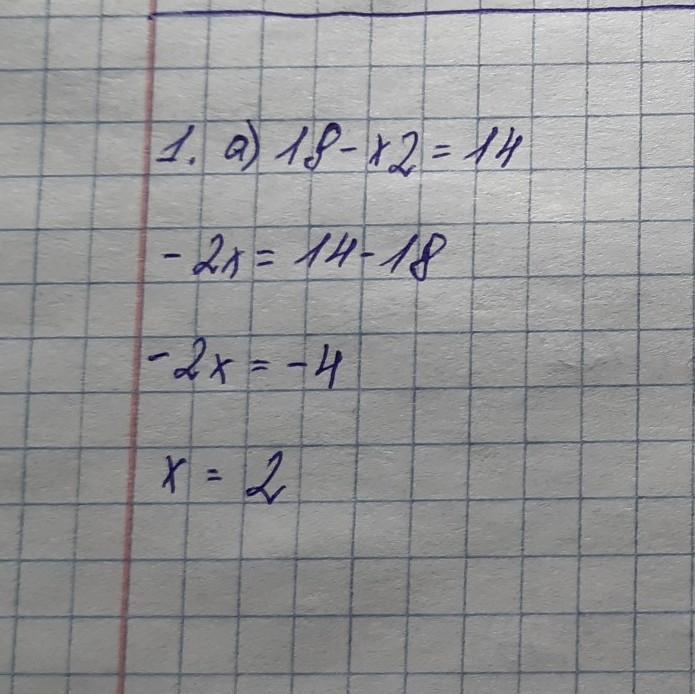 1. а) 18-x2=14
-2x=14-18
-2x=-4
x=2